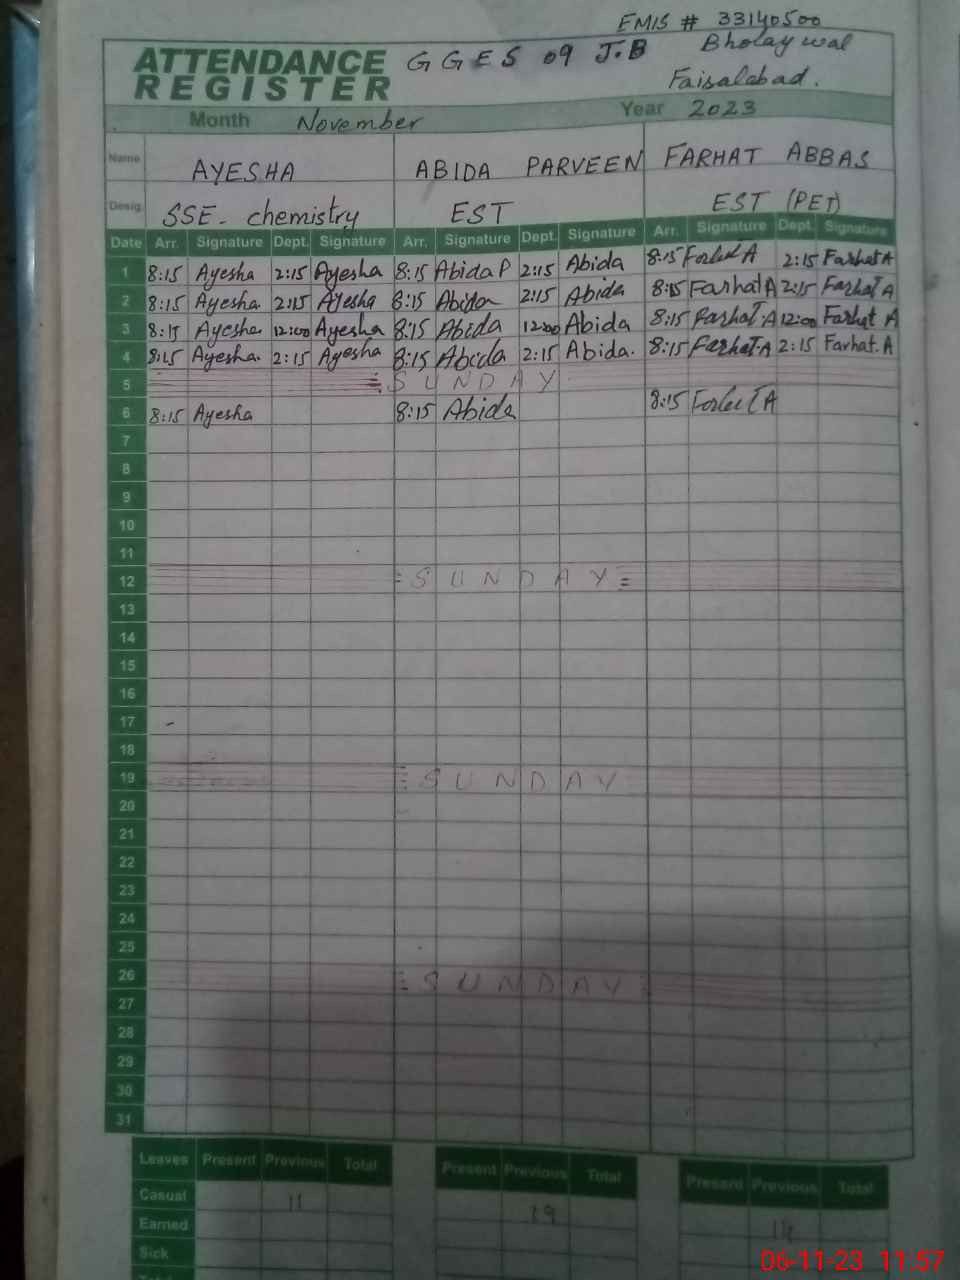 EMIS # 33140500
ATTENDANCE GGES 09 J.B Bholay wal
REGISTER Faisalabad.
Month November Year 2023
Name AYESHA ABIDA PARVEEN FARHAT ABBAS
Desig. SSE- chemistry EST EST (PET)
Date Arr. Signature Dept. Signature Arr. Signature Dept. Signature Arr. Signature Dept. Signature
1 8:15 Ayesha 2:15 Ayesha 8:15 Abida P 2:15 Abida 8:15 Farhat A 2:15 Farhat A
2 8:15 Ayesha. 2:15 Ayesha 8:15 Abida 2:15 Abida 8:15 Farhat A 2:15 Farhat A
3 8:15 Ayesha. 12:00 Ayesha 8:15 Abida 12:00 Abida 8:15 Farhat.A 12:00 Farhat A
4 8:15 Ayesha. 2:15 Ayesha 8:15 Abida 2:15 Abida. 8:15 Farhat.A 2:15 Farhat.A
5 SUNDAY
6 8:15 Ayesha 8:15 Abida 8:15 Farhat A
7
8
9
10
11
12 SUNDAY
13
14
15
16
17
18
19 SUNDAY
20
21
22
23
24
25
26 SUNDAY
27
28
29
30
31
Leaves Present Previous Total Present Previous Total Present Previous Total
Casual 11 19
Earned
Sick
06-11-23 11:57